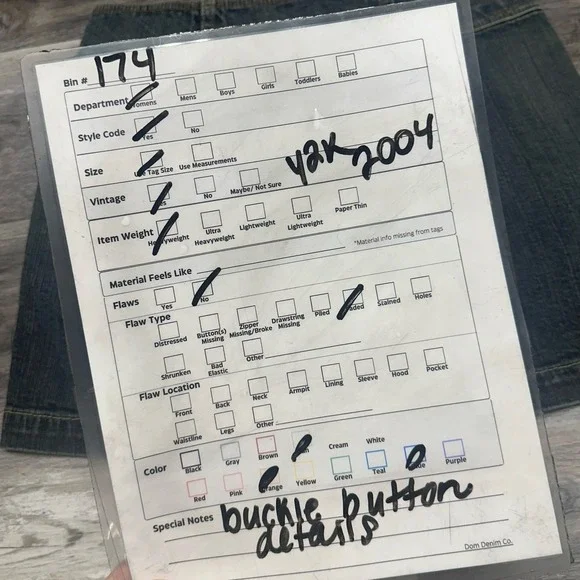 Bin # 174
Department Womens Mens Boys Girls Toddlers Babies
Style Code Yes No
Size Use Tag Size Use Measurements
Vintage Yes No Maybe/ Not Sure
y2k 2004
Item Weight Heavyweight Ultra Heavyweight Lightweight Ultra Lightweight Paper Thin
*Material info missing from tags
Material Feels Like
Flaws Yes No
Flaw Type Distressed Button(s) Missing Zipper Missing/Broke Drawstring Missing Piled Faded Stained Holes
Shrunken Bad Elastic Other
Flaw Location Front Back Neck Armpit Lining Sleeve Hood Pocket
Waistline Legs Other
Color Black Gray Brown Cream White
Red Pink Orange Yellow Green Teal Blue Purple
Special Notes buckle button
details
Dom Denim Co.